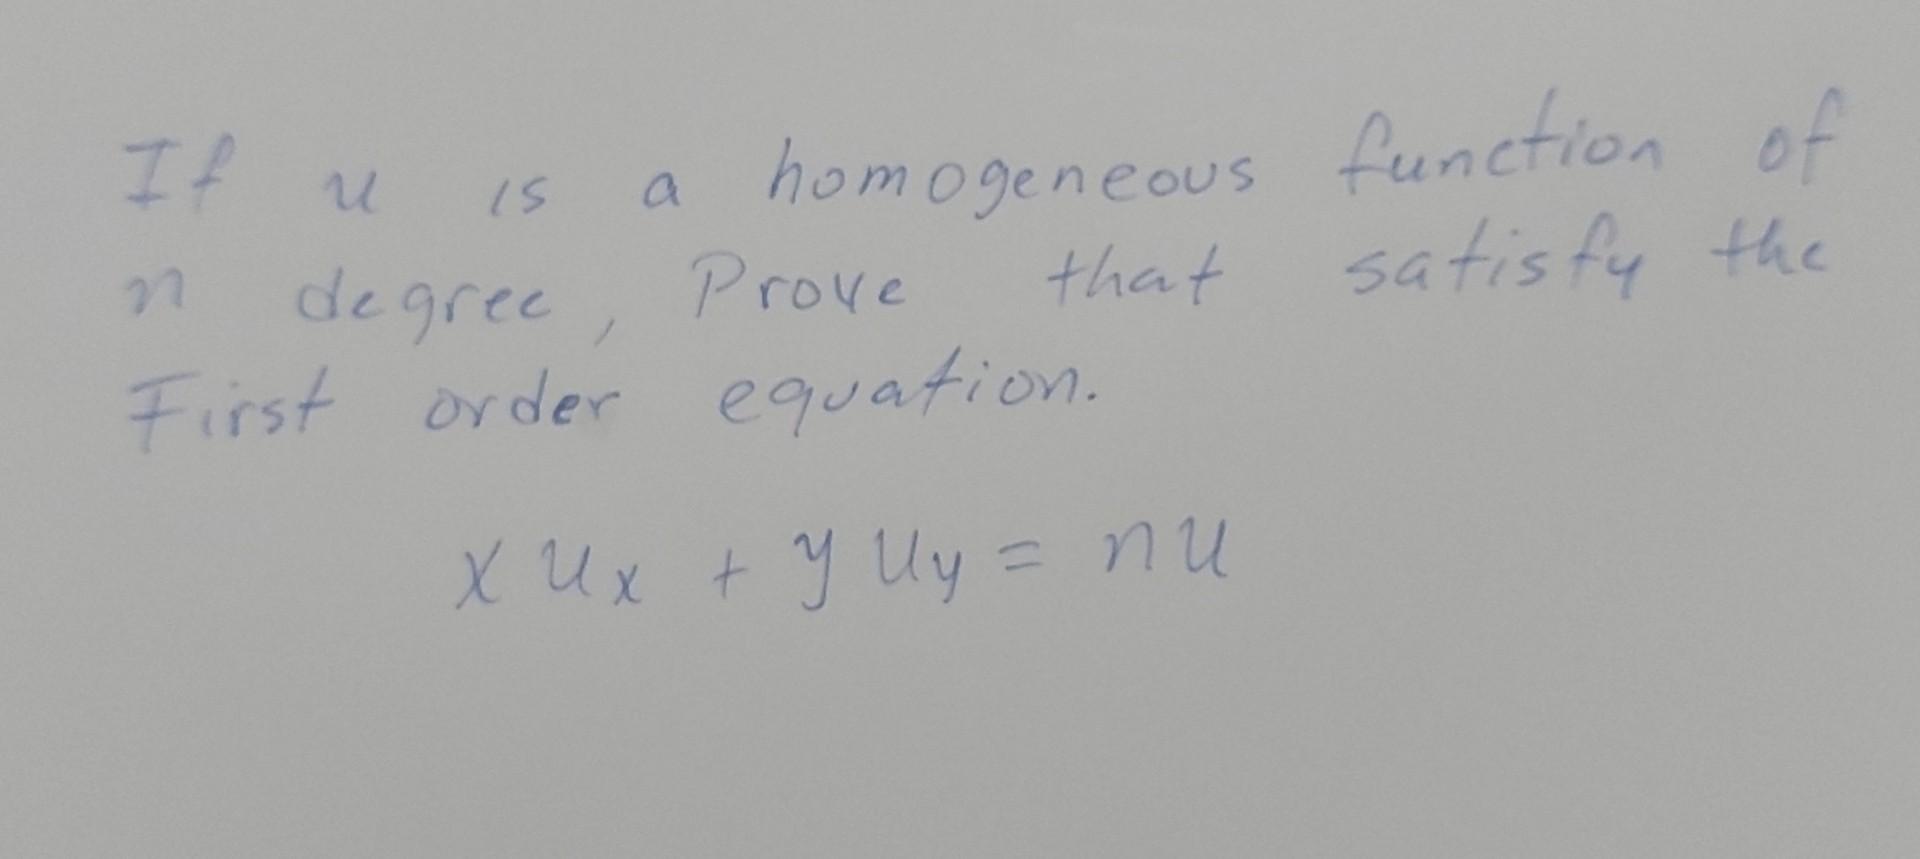 If u is a homogeneous function of
n degree, Prove that satisfy the
First order equation.
x u_x + y u_y = n u